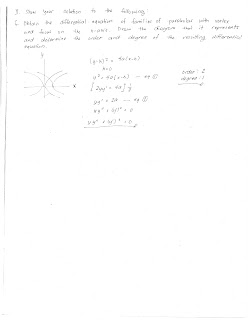 3. Show your solution to the following.
6. Obtain the differential equation of families of parabolas with vertex
and focus on the x-axis. Draw the diagram that it represents
and determine the order and degree of the resulting differential
equation.
y
x
(y-k)² = 4a(x-h)
k=0
y² = 4a(x-h) -- eq ①
[2yy' = 4a] ½
yy' = 2a --- eq ②
yy" + y'y' = 0
yy" + (y')² = 0
order: 2
degree: 1